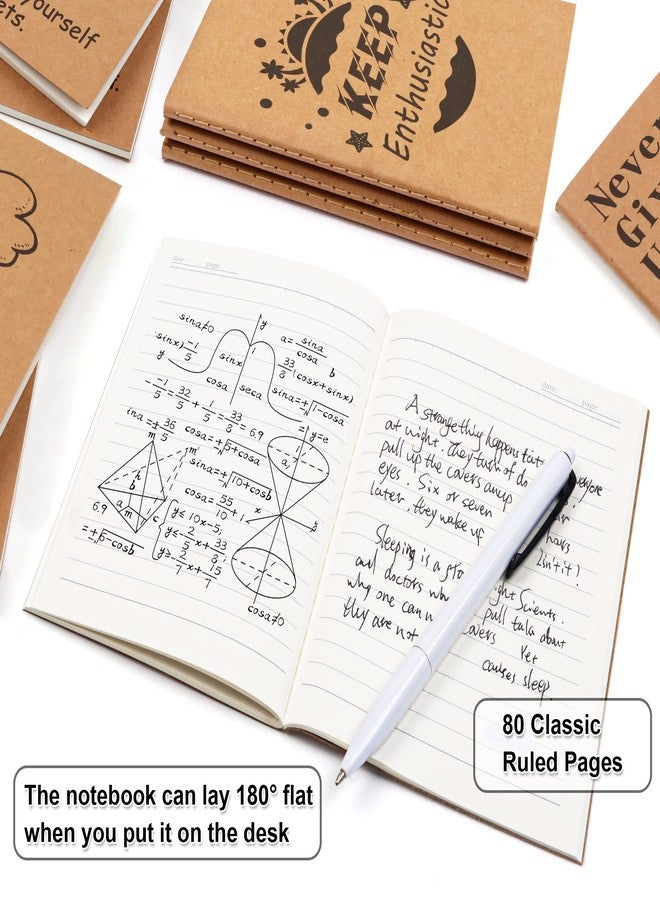 yourself
ets.
KEEP
Enthusiastic
Never
Giv
U
date: page:
sina≠0
y
a= sina/cosa
sinx) -1/5
y
1
b
sinx
33/8 (cosx+sinx)
cosa
seca
sina=±√1-cosa
-1/5 = 32/5 + 1/5 = 33/8 = 6.9
y=e
ina=± 36/5
cosa=±√5+cosa
a
m
m'
sina=±√10+cosb
h
b
cosa= 55/10 +1
x
y
6.9
a
m
c
y≤ 10x-5;
y≤-2/5 x+ 33/8
y≥-2/7 x+ 15/7
=±√5-cosb
cosa≠0
date: page:
A strange thing happens
at night. They
pull up the covers
eyes. Six or seven hours
later, they wake up. Isn't it!
Sleeping is a
and doctors Scients.
why one can pull talk about
they are not covers Yet
causes sleep.
80 Classic
Ruled Pages
The notebook can lay 180° flat
when you put it on the desk